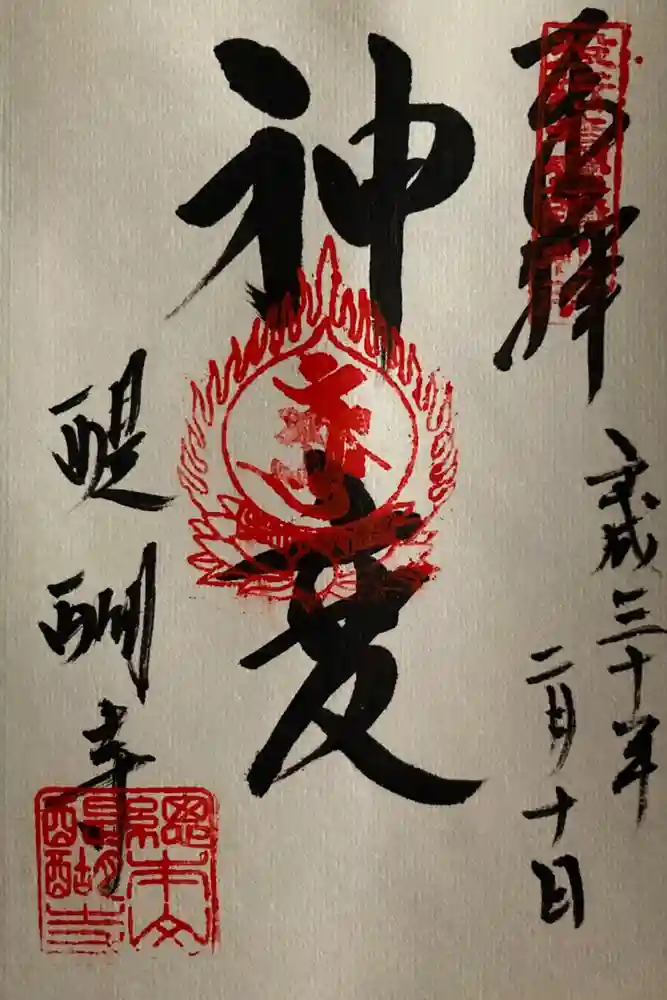 奉拝
平成三十年
二月十日
神变
醍醐寺
総本山
醍醐寺